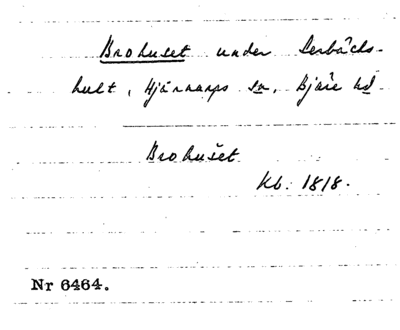 Brohuset under Derbäcks-
hult, Hjärnarps sn, Bjäre hd
Brohuset
Kb. 1818.
Nr 6464.